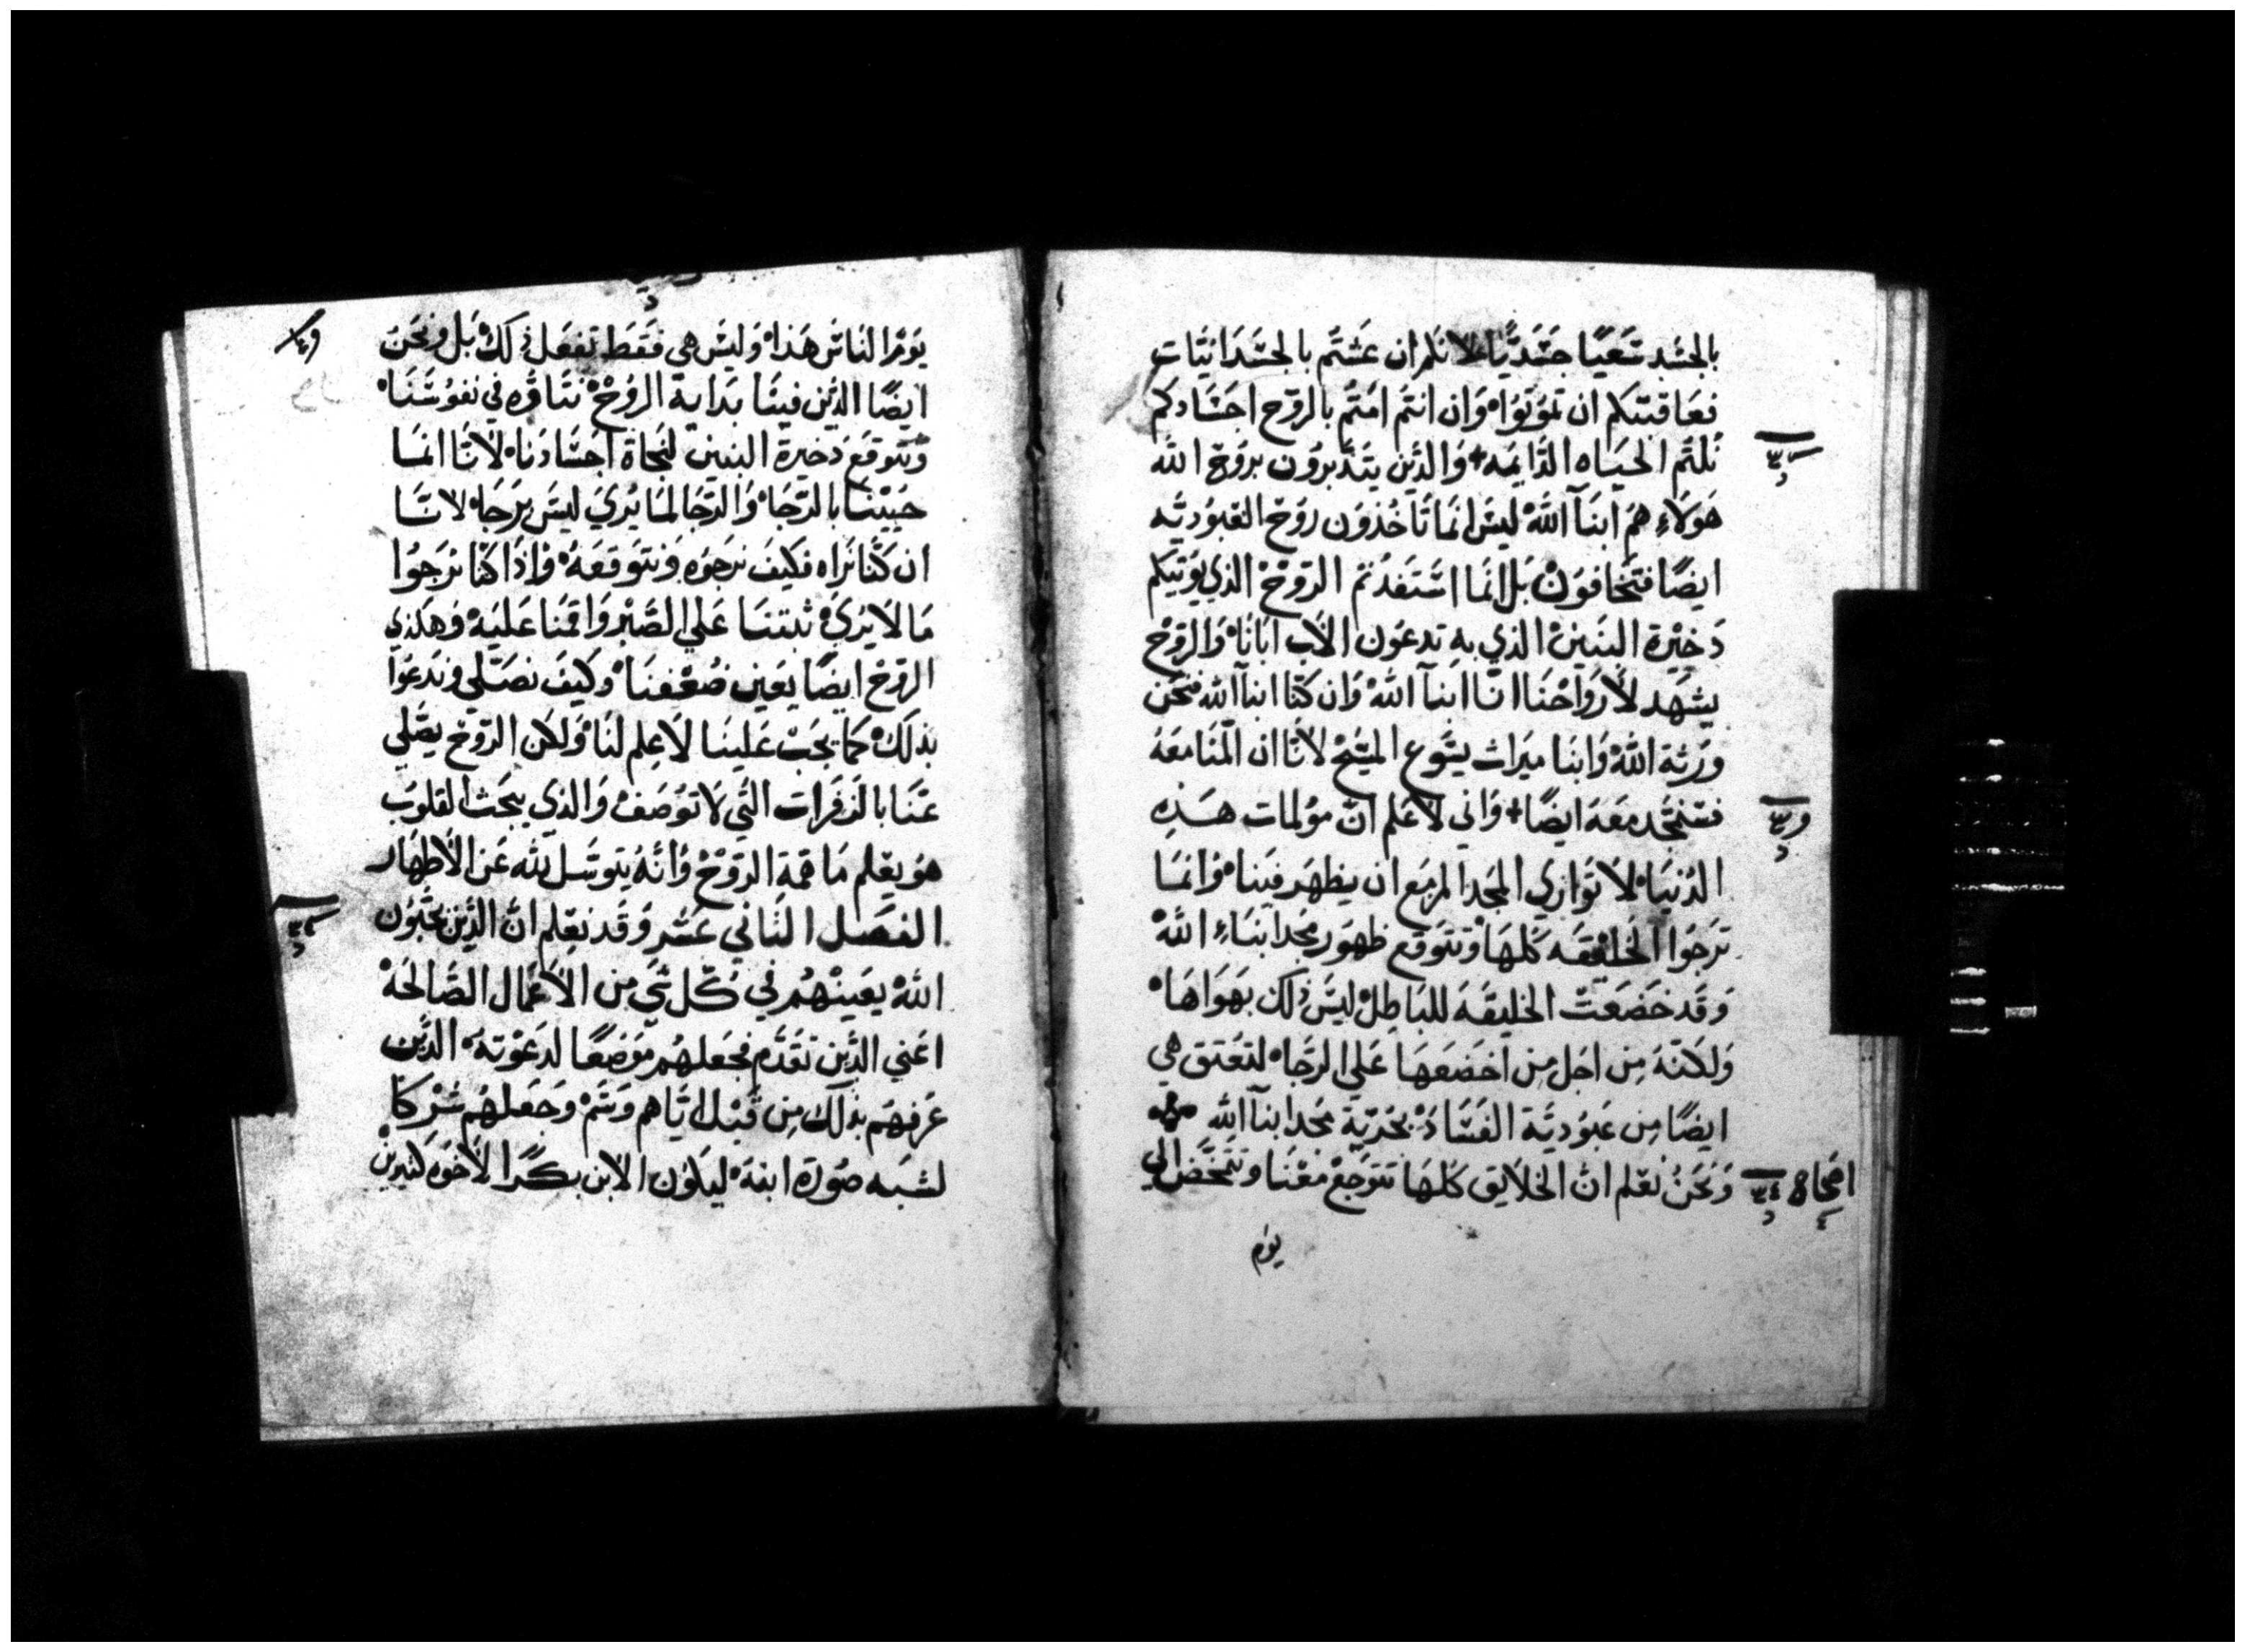 بالجسد سَعيًا جسَديًا لانكم ان عشتم بالجسَدانيّات
فعَاقبتكم ان تموتوُا وَان انتم امتم بالروح اجسَادكم
نلتم الحيَاه الدَايمه + وَالذين يتدَبروُن بروح الله
هَولَاءِ همَ ابنآ الله ليسَ انمَا تاخُذوُن روَح العَبوُديّه
ايضًا فتخافوَن بَل انمَا استَفدُتم الروَح الذي يوُتيكم
دَخيرة البنَين الذي به تدعوُن الاب ابَانا وَالروَح
يشهَد لاروَاحنَا انّا ابنآ الله وَان كنّا ابنآ الله فنحَن
ورَثة الله وَابنا ميَراث يسَوع المسَيح لانا ان المنَا معَهُ
فسَنمجّد معَهَ ايضًا + وَاني لاعَلم انّ موُلمات هَذه
الدُنيَا لاتوَازي المجَد المزمَع ان يظهَر فينا وَانمَا
ترَجوُا الخليقَه كَلهَا وَتتوَقع ظهوَر مجد ابنَاءِ الله
وَقَد خضَعَت الخليقَه للبَاطِل ليسَ ذلكَ بهَوَاهَا
وَلكنّهَ مِن اجَل مِن اخضَعَهَا عَلي الرجَاء لتعَتق هي
ايضًا مِن عَبوُديّة الفسَادَ بحَريّة مجَد ابنآ الله
اصحاح ٣٤ وَنحَنُ نعَلم انّ الخلَايق كَلهَا تتوَجعَ معَنا وَتتمخّضَ الي
يوُم
يوَمنا لنَاسَ هَذا وَليسَ هي فقَط تفعَل ذلكَ بَل وَنحَنُ
ايضًا الذين فينَا بدَاية الروُح نتَاوُه في نفوُسَنَا
وَنتوَقعَ دَخيرة البنين لنجَاة اجسَادنا لانَا انمَا
حَييَنا بالرّجَا وَالرّجَا لمَا يُريَ ليسَ برَجَا لانَا
ان كنّا نرَاه فكيَف نرجَوُه وَنتوَقعَهُ وَاذا كنّا نرَجوُا
مَا لَا يُريَ ثبتنَا عَلي الصّبر وَاقمنَا عَليَه وَهَكذي
الروَح ايضًا يعَين ضُعفنَا وَكيفَ نصَلّي وَندَعوُا
بذلكَ كمَا يجَبَ عَلينَا لاعِلم لنَا وَلكن الروَح يصّلي
عَنّا بالزفرَات التّي لاتوُصَف وَالذي يبحَث القلوُب
هوَ يعَلم مَا همة الروَح وَانّهُ يتوسَل لله عَن الاطهَار
الفصَل الثَاني عَشر وَقَد نعَلم انّ الذين يحَبّون
الله يعَينهُم في كلّ شَي مِن الاعمَال الصّالحَة
اعَني الذّين تقَدّم فجعَلهُم موَضعًا لدعَوُته الذّين
عَرفهُم بذلكَ مِن قبَل ايّاهم وَسَم وَجعَلهُم شرَكَا
لشبَه صوُرة ابنهَ ليكوُن الابن بكرًا لاخوَه كثيرين